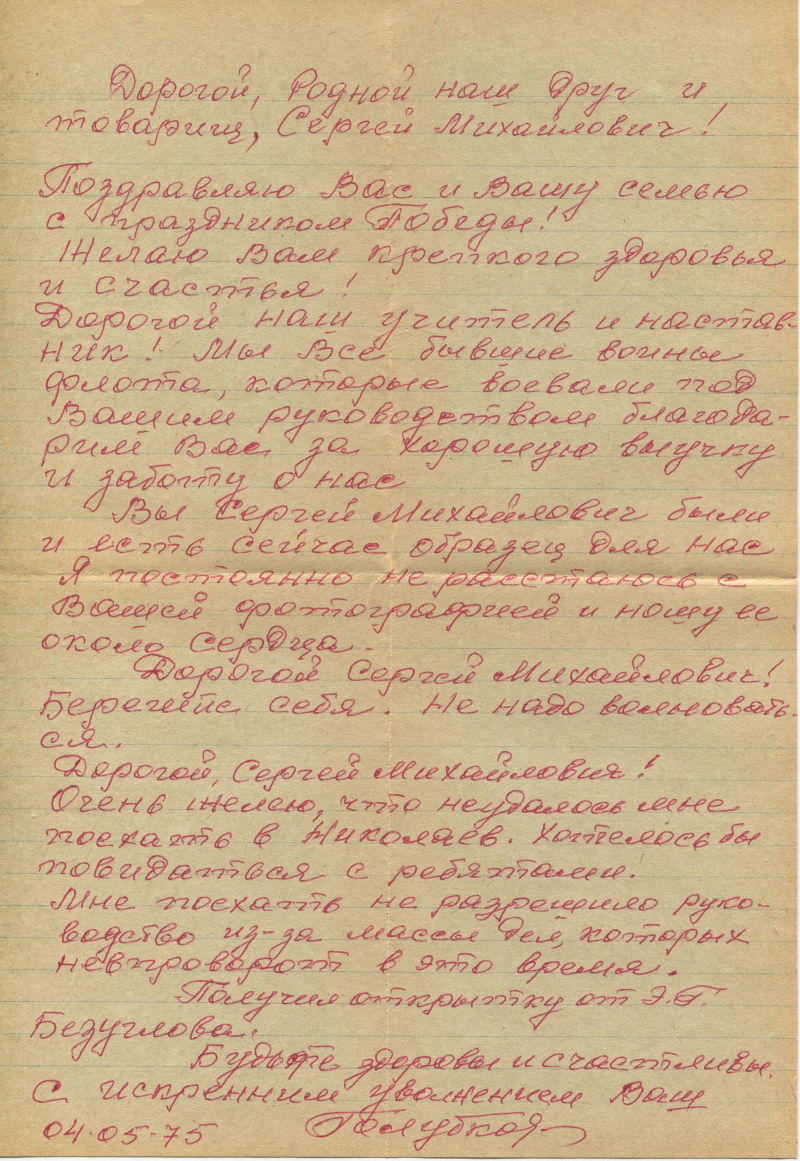 Дорогой, Родной наш Друг и
товарищ, Сергей Михайлович!
Поздравляю Вас и Вашу семью
с праздником Победы!
Желаю Вам крепкого здоровья
и счастья!
Дорогой наш учитель и настав-
ник! Мы Все бывшие воины
флота, которые воевали под
Вашим руководством благода-
рим Вас за хорошую выучку
и заботу о нас
Вы Сергей Михайлович были
и есть сейчас образец для нас
Я постоянно не расстаюсь с
Вашей фотографией и ношу ее
около сердца.
Дорогой Сергей Михайлович!
Берегите себя. Не надо волновать-
ся.
Дорогой, Сергей Михайлович!
Очень жалею, что неудалось мне
поехать в Николаев. Хотелось бы
повидаться с ребятами.
Мне поехать не разрешило руко-
водство из-за массы дел, которых
невпроворот в это время.
Получил открытку от Э.Г.
Безуглова.
Будьте здоровы и счастливы.
С искренним уважением Ваш
04.05-75